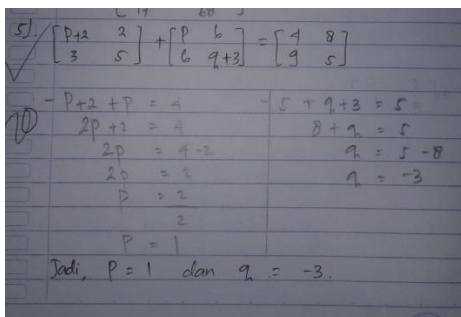 5). [P+2 2] + [P 6] = [4 8]
[3 5] [6 q+3] [9 5]
- P+2 + P = 4
2P + 2 = 4
2P = 4-2
2P = 2
P = 2
2
P = 1
- 5 + q + 3 = 5
8 + q = 5
q = 5 - 8
q = -3
10
Jadi, P = 1 dan q = -3.